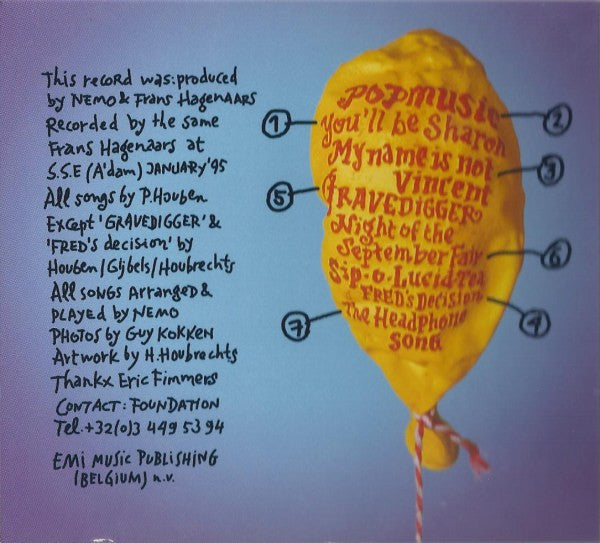 This record was:produced
by NEMO & Frans Hagenaars
Recorded by the same
Frans Hagenaars at
S.S.E (A'dam) JANUARY '95
All songs by P.Houben
Except 'GRAVEDIGGER' &
'FRED's decision' by
Houben/Gijbels/Houbrechts
All SONGS ArrangeD &
PLAYED by NEMO
PHOTOS by GUY KOKKEN
Artwork by H.Houbrechts
Thankx Eric Fimmers
CONTACT: FOUNDATION
Tel.+32(0)3 449 53 94
EMI MUSIC PUBLISHING
(BELGIUM) n.v.
POPMUSIC
2
1
You'll be Sharon
My name is not
Vincent
3
5
GRAVEDIGGER
Night of the
September Fair
6
Sip-o-Lucid Tea
FRED's Decision
4
7
The Headphone
SONG